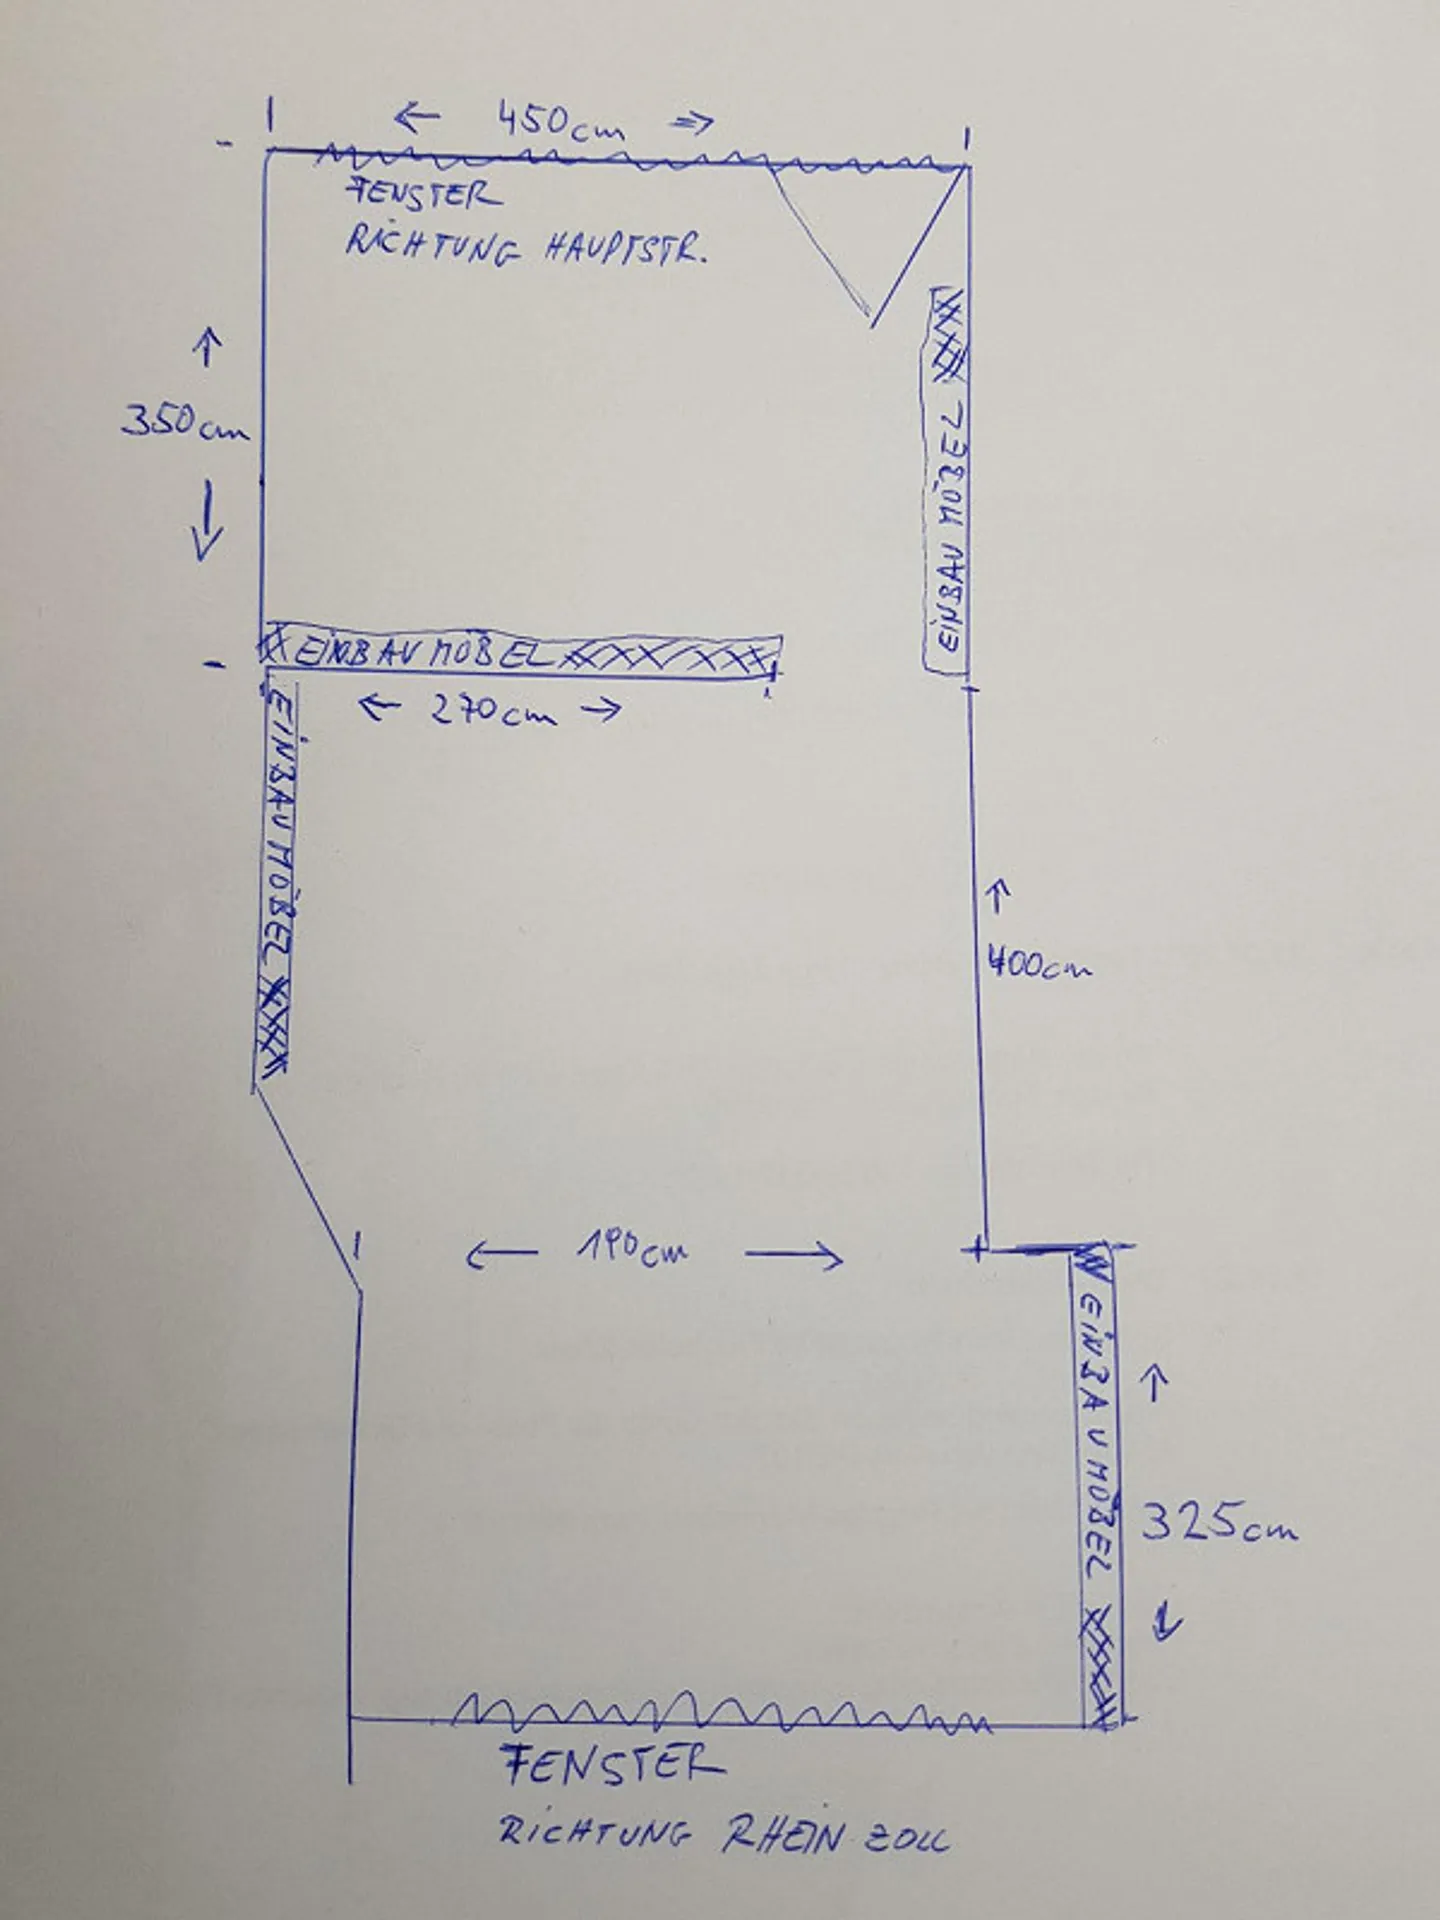 450cm
FENSTER
RICHTUNG HAUPTSTR.
350cm
EINBAU MÖBEL
EINBAU MÖBEL
270cm
EINBAU MÖBEL
400cm
190cm
EINBAU MÖBEL
325cm
FENSTER
RICHTUNG RHEIN ZOLL